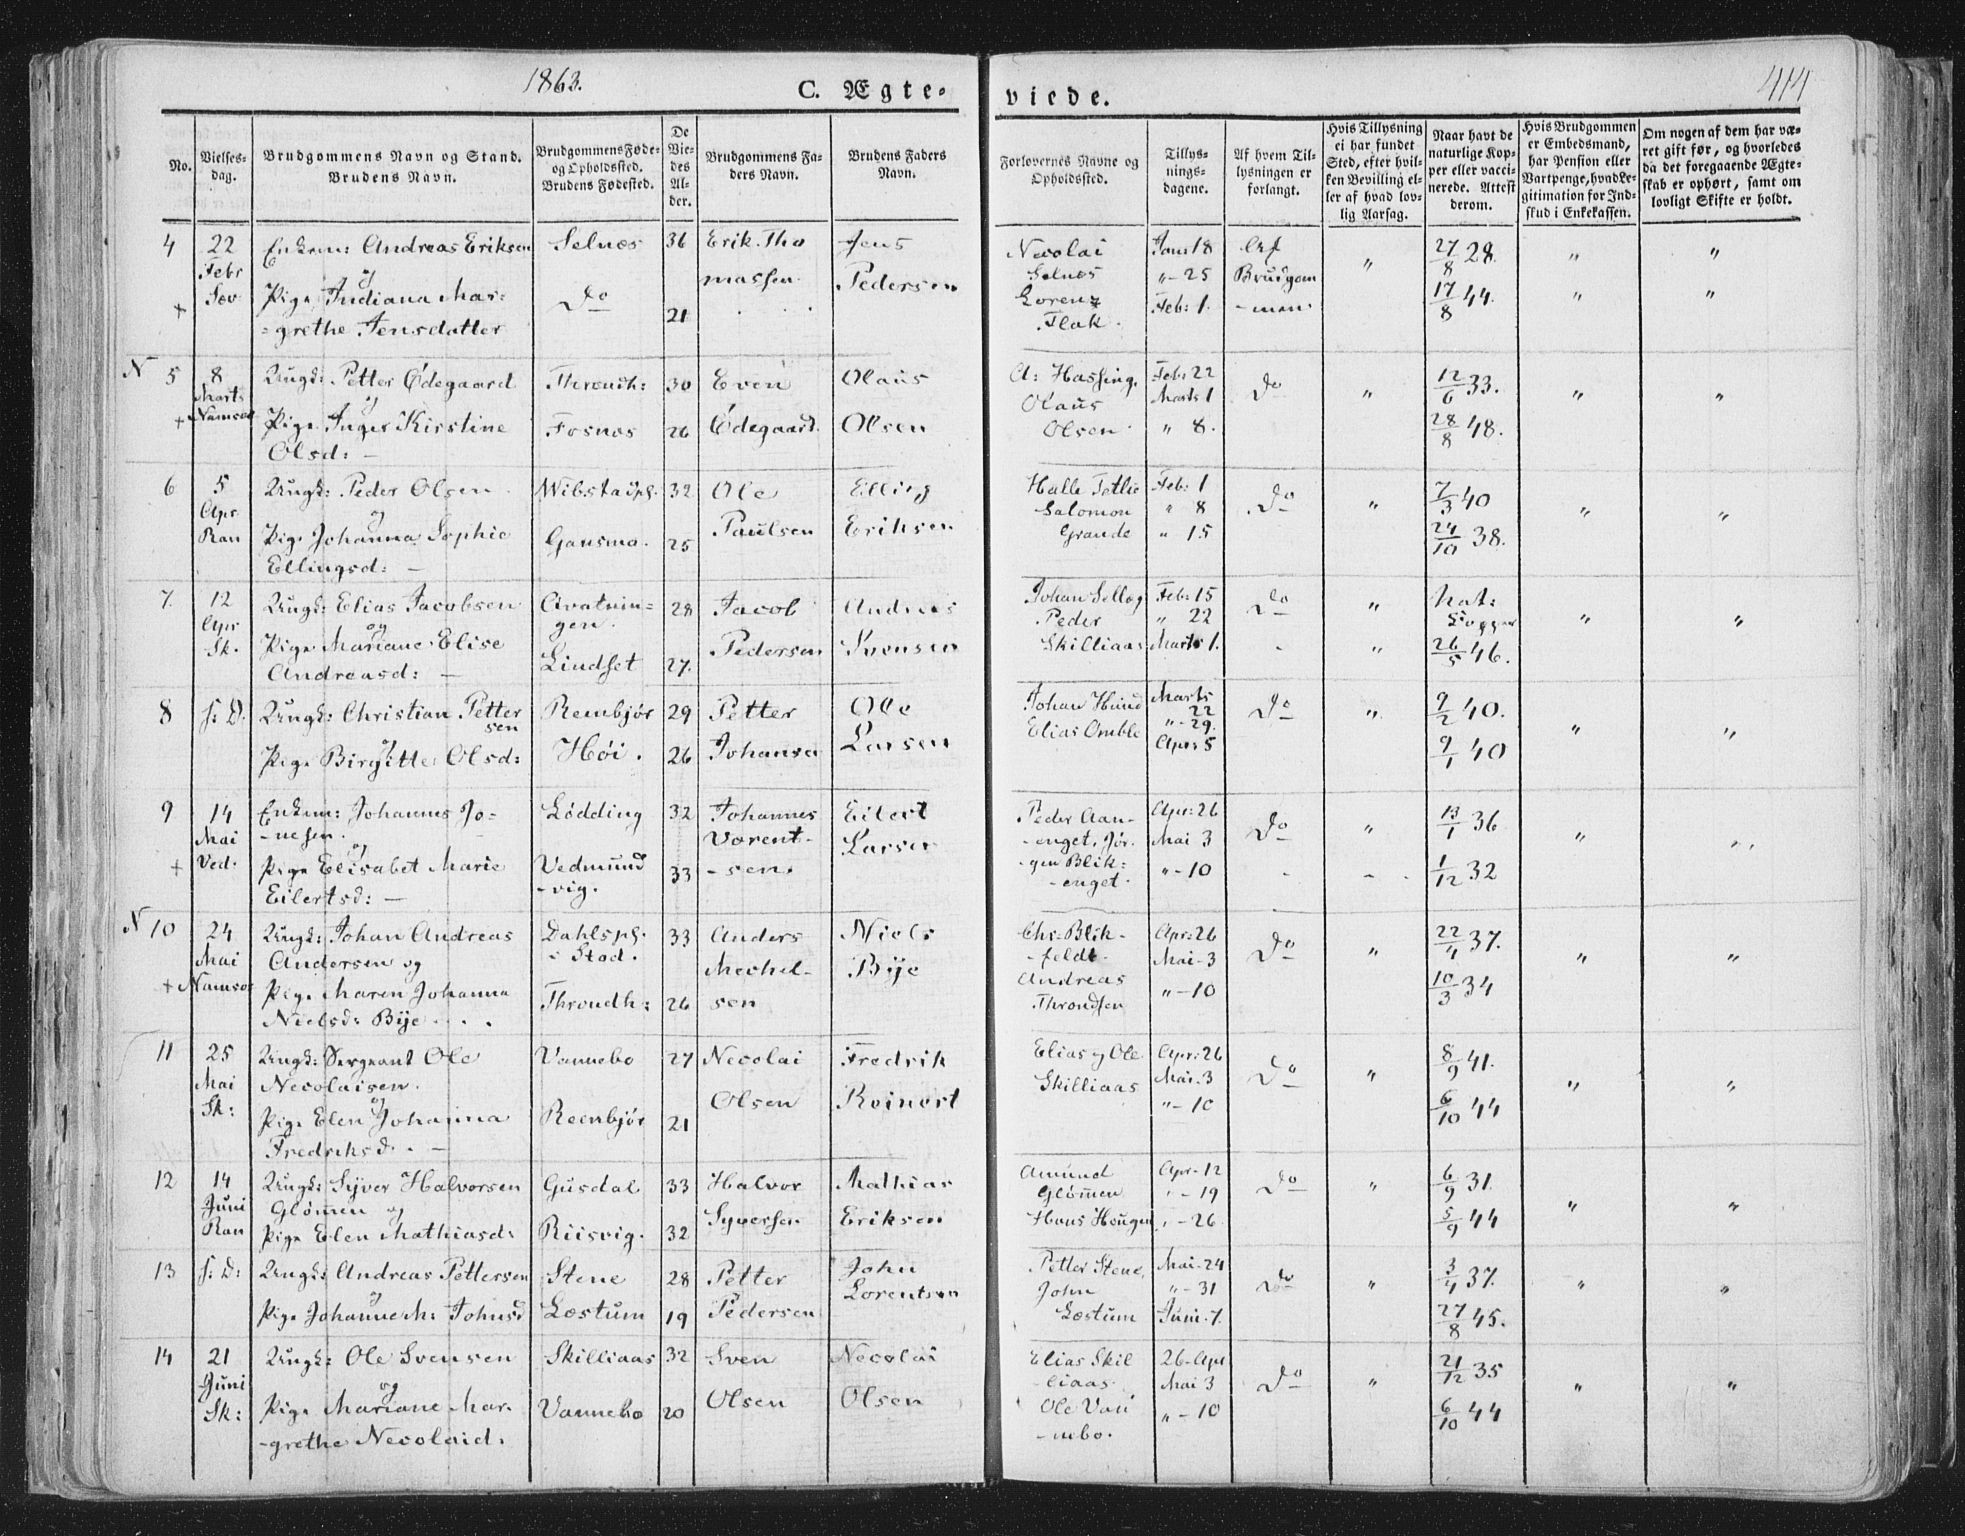 1863.
C. Ægte-
viede.
414
No.
Vielses-
dag.
Brudgommens Navn og Stand.
Brudens Navn.
Brudgommens Føde-
og Opholdssted.
Brudens Fødested.
De
Vie-
des
Al-
der.
Brudgommens Fa-
ders Navn.
Brudens Faders
Navn.
Forlovernes Navne og
Opholdssted.
Tillys-
nings-
dagene.
Af hvem Til-
lysningen er
forlangt.
Hvis Tillysning
ei har fundet
Sted, efter hvil-
ken Bevilling el-
ler af hvad lov-
lig Aarsag.
Naar havt de
naturlige Kop-
per eller vacci-
nerede. Attest
derom.
Hvis Brudgommen
er Embedsmand,
har Pension eller
Vartpenge, hvad Le-
gitimation for Ind-
skud i Enkekassen.
Om nogen af dem har væ-
ret gift før, og hvorledes
da det foregaaende Ægte-
skab er ophørt, samt om
lovligt Skifte er holdt.
4 22 Enkem: Andreas Eriksen Selnæs 36 Erik Tho Jens Nicolai Janu 18 Af 27/8 28. " "
Febr og massen Pedersen Selnæs "-25 Brudgom "
Sæv Pige Indiana Mar= Do 21 Lorenz Feb: 1. -men. 17/8 44. " "
+ =grethe Jensdatter Flak.
N 5 8 Ungk: Petter Ødegaard Throndh: 30 Even Olaus A: Hassing. Feb: 22 Do " 12/6 33. " "
Marts og Olaus Marts 1
+ Namsos Pige Inger Kirstine Fosnæs 26 Ødegaard. Olsen Olsen " 8. 28/8 48.
Olsd: -
6 5 Ungk: Peder Olsen Vibstadpl. 32 Ole Elling Halle Tetlie Feb: 1 Do " 7/3 40 " "
Apr og Salomon " 8
Ran Pige Johanna Sophie Gansmo. 25 Paulsen Eriksen Grande " 15 24/10 38.
Ellingsd: -
7. 12 Ungk: Elias Jacobsen Avatnin= 28 Jacob Andreas Johan Sellæg Feb: 15 Do " Nat: " "
Apr og gen. Peder " 22 Kopper
Sk. Pige Mariane Elise Lindset 27. Pedersen Svensen Skilliaas Marts 1. " 26/5 46.
Andreasd: -
8 s: D. Ungk: Christian Petter Rembjør 29 Petter Ole Johan Hund Marts Do " 9/2 40. " "
sen 22
og Elias Omble "-29.
Pige Birgitte Olsd: Høi. 26 Johansen Larsen Apr: 5 9/1 40
9 14 Enkem: Johannes Jo= Lødding 32 Johannes Eilert Peder Aan- Apr: 26 Do " 13/1 36 " "
Mai -nesen. og Vorent- Larsen -enget, Jør- Mai 3
Ved. Pige Elisabet Marie Vedmund 33 -sen. gen Blik: "-10 1/12 32
+ Eilertsd: - -vig. -enget.
N 10 24 Ungk: Johan Andreas Dahlspl. 33 Anders Niels Chr: Blik- Apr: 26 Do " 22/4 37. " "
Mai Andersen og i Stod. Mechel- Bye -feldt. Mai-3
+ Namsos Pige Maren Johanna Throndh: 26 sen Andreas "-10 10/3 34
Nielsd: Bye Throndsen
11 25 Ungk: Sergeant Ole Vannebo 27 Necolai Fredrik Elias og Ole Apr: 26 Do " 8/9 41. " "
Mai Necolaisen. Skilliaas Mai-3
Sk: og Olsen Reinert "-10
Pige Elen Johanna Reenbjør 21 6/10 44
Fredriksd. -
12 14 Ungk: Syver Halvorsen Gusdal 33 Halvor Mathias Amund Apr-12 Do " 6/9 31. " "
Juni Glømen og Glømen "-19
Ran Pige Elen Mathiasd: Riisvig. 32 Syversen Eriksen Hans Hougen "-26. 5/9 44
13 s: D: Ungk: Andreas Pettersen Stene 28 Petter John Petter Stene, Mai-24 Do " 3/4 37. " "
og Lorentsen John "-31
Pige Johanne M: Johnsd Læstum 19 Pedersen Læstum Juni-7. 27/8 45.
14 21 Ungk: Ole Svensen Skilliaas 32 Sven Necolai Elias Skil 26-Apr Do " 21/12 35 " "
Juni og -liaas. Mai 3
Sk: Pige Mariane Mar- Vannebo 20 Olsen Olsen Ole Van "-10 6/10 44
-grethe Necolaid. -nebo.